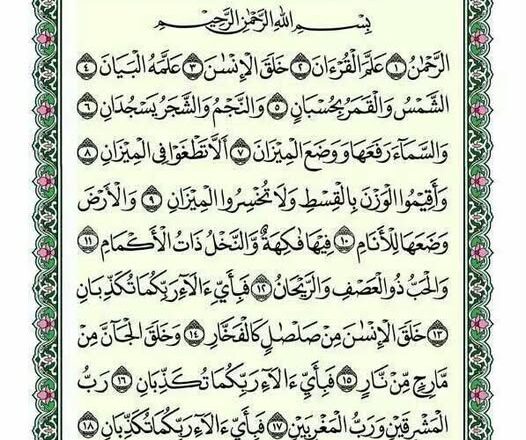 بِسْمِ اللَّهِ الرَّحْمَٰنِ الرَّحِيمِ
الرَّحْمَٰنُ ١ عَلَّمَ الْقُرْءَانَ ٢ خَلَقَ الْإِنسَٰنَ ٣ عَلَّمَهُ الْبَيَانَ ٤
الشَّمْسُ وَالْقَمَرُ بِحُسْبَانٍ ٥ وَالنَّجْمُ وَالشَّجَرُ يَسْجُدَانِ ٦
وَالسَّمَاءَ رَفَعَهَا وَوَضَعَ الْمِيزَانَ ٧ أَلَّا تَطْغَوْا فِي الْمِيزَانِ ٨
وَأَقِيمُوا الْوَزْنَ بِالْقِسْطِ وَلَا تُخْسِرُوا الْمِيزَانَ ٩ وَالْأَرْضَ
وَضَعَهَا لِلْأَنَامِ ١٠ فِيهَا فَٰكِهَةٌ وَالنَّخْلُ ذَاتُ الْأَكْمَامِ ١١
وَالْحَبُّ ذُو الْعَصْفِ وَالرَّيْحَانُ ١٢ فَبِأَيِّ ءَالَاءِ رَبِّكُمَا تُكَذِّبَانِ
١٣ خَلَقَ الْإِنسَٰنَ مِن صَلْصَٰلٍ كَالْفَخَّارِ ١٤ وَخَلَقَ الْجَانَّ مِن
مَّارِجٍ مِّن نَّارٍ ١٥ فَبِأَيِّ ءَالَاءِ رَبِّكُمَا تُكَذِّبَانِ ١٦ رَبُّ
الْمَشْرِقَيْنِ وَرَبُّ الْمَغْرِبَيْنِ ١٧ فَبِأَيِّ ءَالَاءِ رَبِّكُمَا تُكَذِّبَانِ ١٨